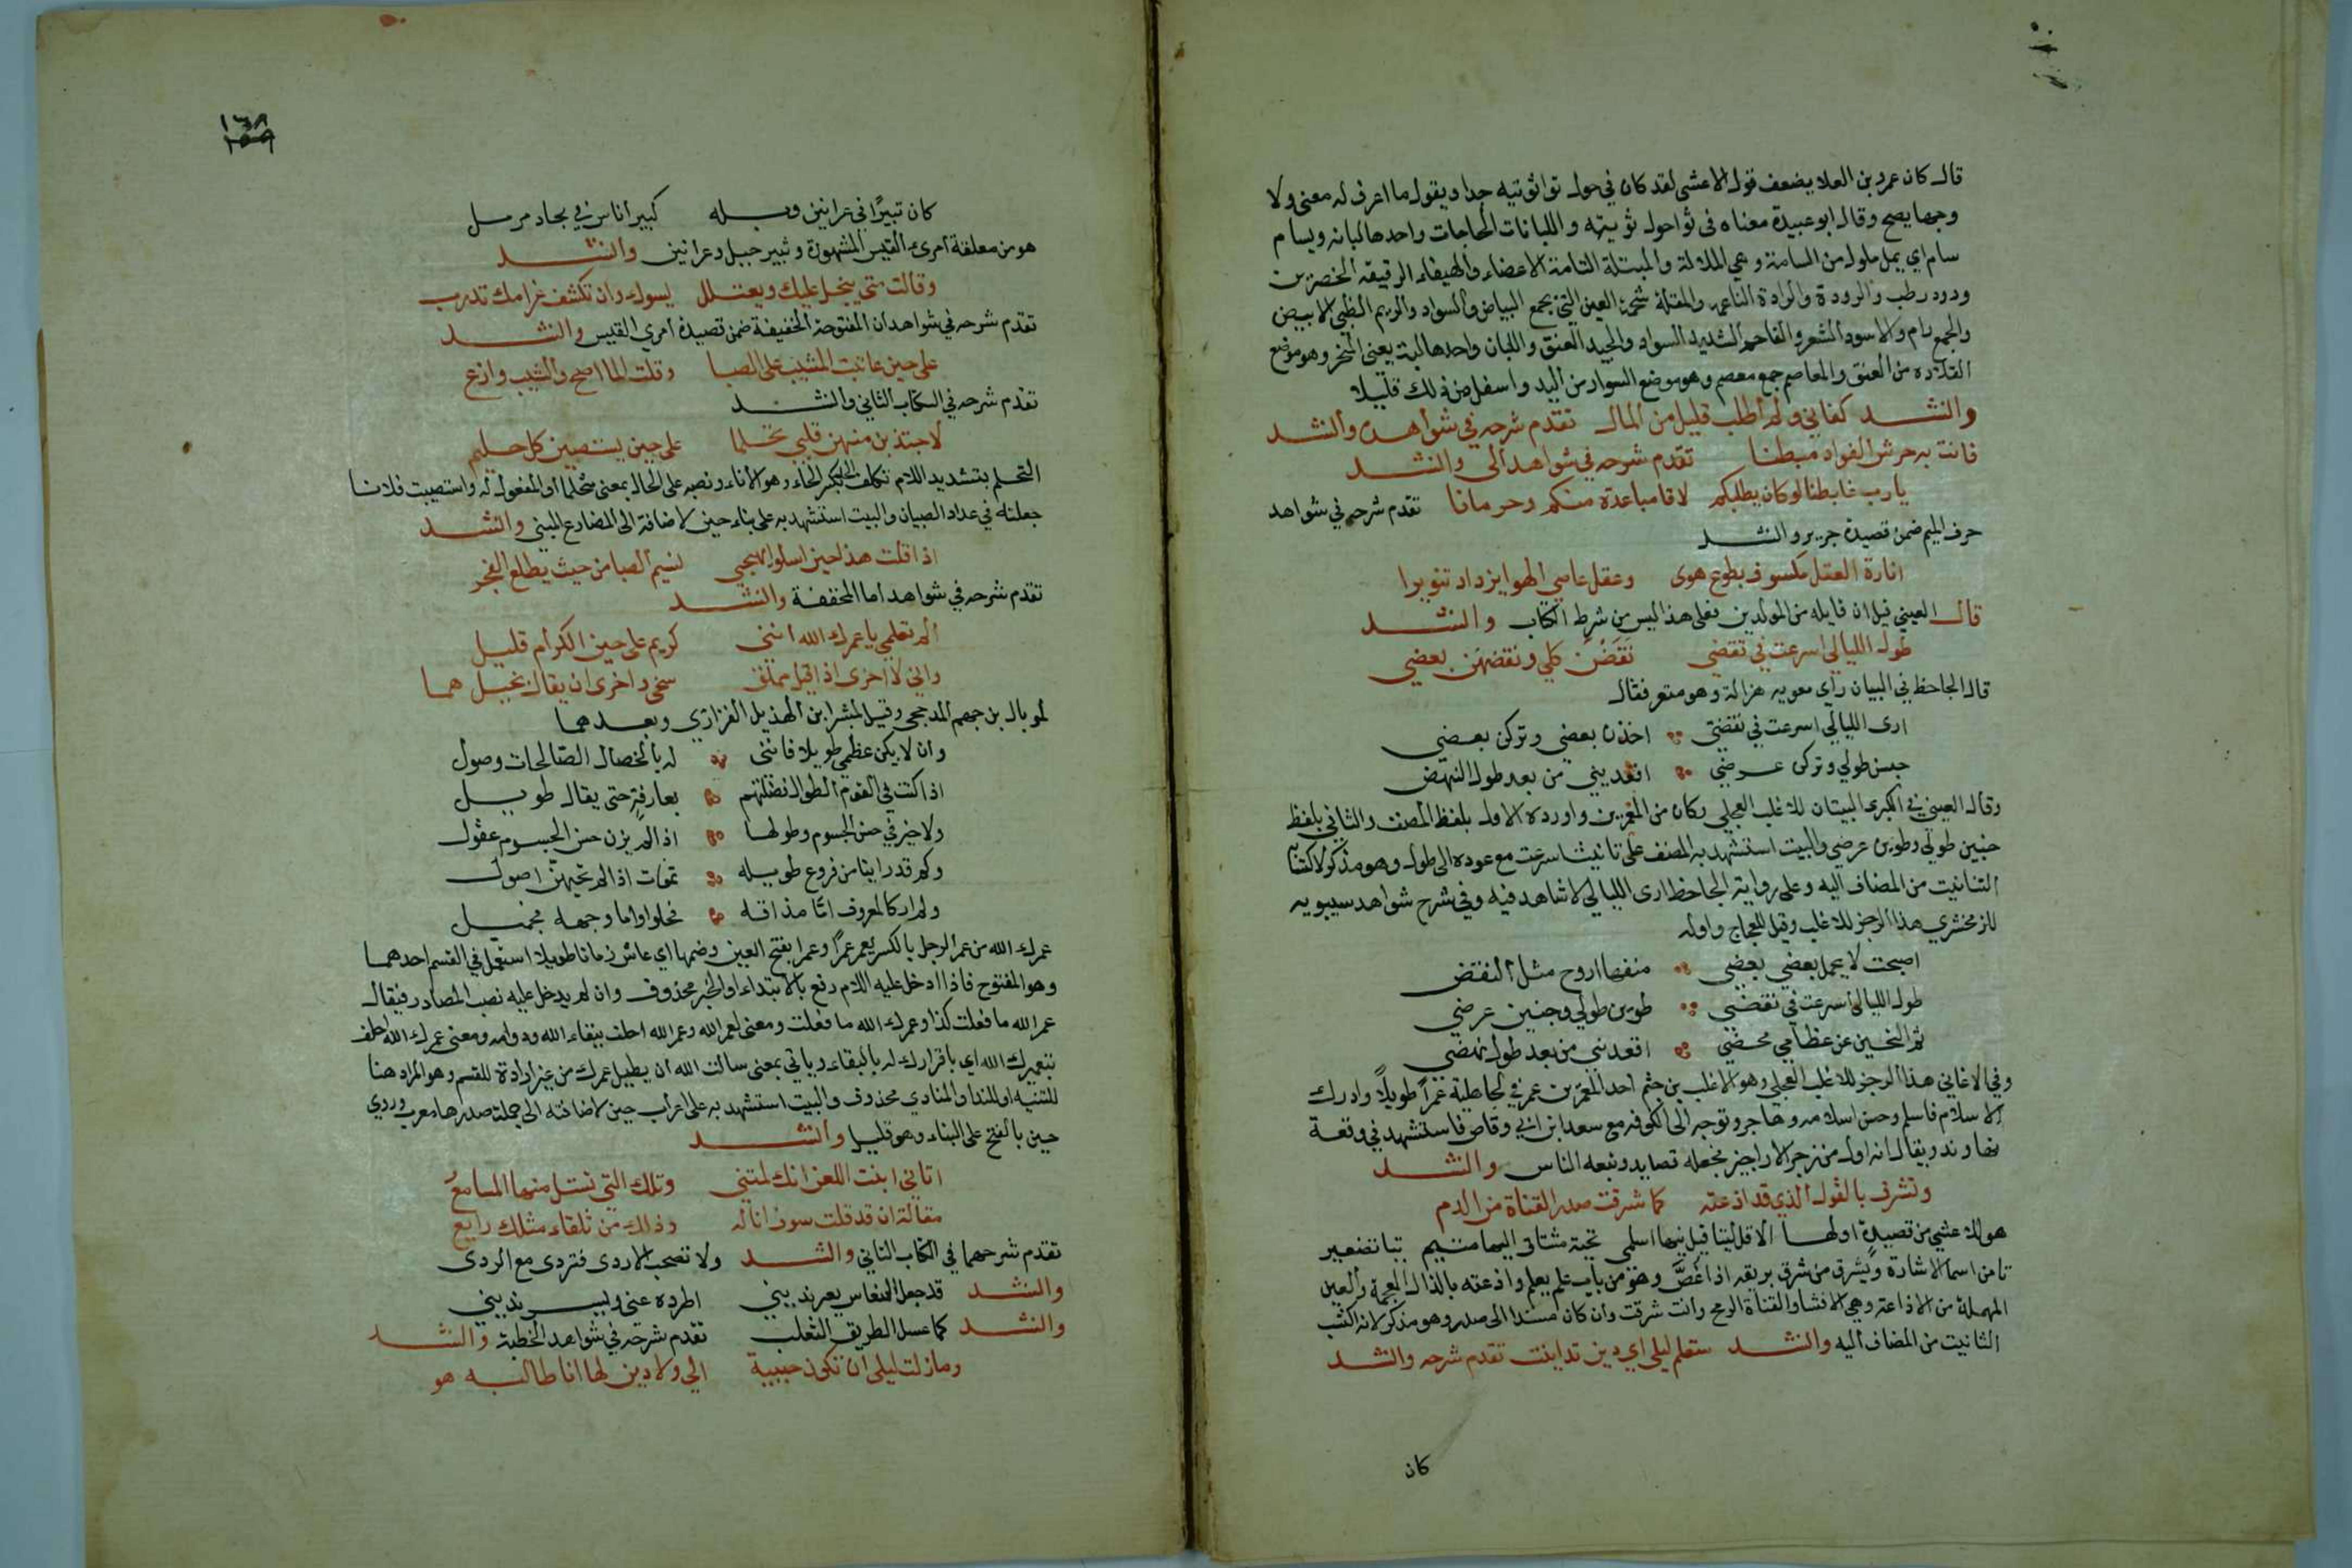 قال كان عمرو بن العلا يضعف قول الاعشى لقد كان في حول ثواثويته جدا ويقول ما اعرف له معنى ولا
وجها يصح وقال ابو عبيدة معناه في ثواحول ثويته واللبانات الحاجات واحدها لبانه ويسام
سام اي يمل ملول من السامة وهي الملالة والمبتلة التامة الاعضاء والهيفاء الرقيقة الخصرين
ودود رطب والرودة والرادة الناعمه والمقلة شحمة العين التي تجمع البياض والسواد والريم الظبي الابيض
والجمع رام والاسود الشعر والفاحم الشديد السواد والجيد العنق واللبان واحدها لبة يعني المنحر وهو موضع
القلاده من العنق والمعاصم جمع معصم وهو موضع السوار من اليد واسفل من ذلك قليلا
وانشد كفاني ولم اطلب قليل من المال تقدم شرحه في شواهد وانشد
فاتت به حوش الفواد مبطنا تقدم شرحه في شواهد الى وانشد
يا رب غابطنا لو كان يطلبكم لاقا مباعدة منكم وحرمانا تقدم شرحه في شواهد
حرف الميم ضمن قصيدة جرير وانشد
انارة العقل مكسوف بطوع هوى وعقل عاصي الهوا يزداد تنويرا
قال العيني قيل ان قايله من المولدين فعلى هذا ليس من شرط الكتاب وانشد
طول الليالي اسرعت في نقضي نقضن كلي ونقضن بعضي
قال الجاحظ في البيان راى معويه هزاله وهو متعر فقال
ارى الليالي اسرعت في نقضي اخذن بعضي وتركن بعضي
حنين طولي وتركن عرضي اقعدنني من بعد طول النهض
وقال العيني في الكبرى البيتان للاغلب العجلي وكان من المعمرين واورده الاول بلفظ المصنف والثاني بلفظ
حنين طولي وطوين عرضي والبيت استشهد به المصنف على تانيث اسرعت مع عوده الى طول وهو مذكر لاكتسابه
التانيث من المضاف اليه وعلى رواية الجاحظ ارى الليالي لا شاهد فيه وفي شرح شواهد سيبويه
للزمخشري هذا الرجز للاغلب وقيل للعجاج واوله
اصبحت لا يحمل بعضي بعضي منفها اروح مثل النقض
طول الليالي اسرعت في نقضي طوين طولي وحنين عرضي
ثم التحين عن عظامي محضي اقعدنني من بعد طول نهضي
وفي الاغاني هذا الرجز للاغلب العجلي وهو الاغلب بن جشم احد المعمرين عمر في الجاهلية عمرا طويلا وادرك
الاسلام فاسلم وحسن اسلامه وهاجر وتوجه الى الكوفه مع سعد ابن ابي وقاص فاستشهد في وقعة
نهاوند ويقال انه اول من رجز الاراجيز فجعله قصايد وتبعه الناس وانشد
وتشرق بالقول الذي قد اذعته كما شرقت صدر القناة من الدم
هو للاعشى من قصيدة اولها الا قل لتيا قبل نيتها اسلمي تحية مشتاق اليها متيم تيا تصغير
تا من اسما الاشارة ويشرق من شرق بريقه اذا غص وهو من باب علم يعلم واذعته بالذال المعجمة والعين
المهملة من الاذاعة وهي الافشا والقناة الرمح وانت شرقت وان كان مسندا الى صدر وهو مذكر لانه اكتسب
التانيث من المضاف اليه وانشد ستعلم ليلى اي دين تداينت تقدم شرحه وانشد
كان
١٦٨
كان ثبيرا في عرانين وبله كبير اناس في بجاد مزمل
هو من معلقة امرىء القيس المشهورة وثبير جبل وعرانين وانشد
وقالت متى يبخل عليك ويعتلل يسوك وان تكشف غرامك تدرب
تقدم شرحه في شواهد ان المفتوحة الخفيفة ضمن قصيدة امري القيس وانشد
على حين عاتبت المشيب على الصبا وقلت الما اصح والشيب وازع
تقدم شرحه في الكتاب الثاني وانشد
لاجتذبن منهن قلبي تحلما على حين يستصبين كل حليم
التحلم بتشديد اللام تكلف الحلم بكسر الحاء وهو الاناء ونصبه على الحال بمعنى متحلما او المفعول له واستصبيت فلانا
جعلته في عداد الصبيان والبيت استشهد به على بناء حين لاضافة الى المضارع المبني وانشد
اذا قلت هذا حين اسلو يهيجني نسيم الصبا من حيث يطلع الفجر
تقدم شرحه في شواهد اما المخففة وانشد
الم تعلمي يا عمرك الله انني كريم على حين الكرام قليل
واني لا اخزى اذا قيل مملق سخي واخزى ان يقال بخيل هما
لموبال بن جهم المدحجي وقيل لمبشر ابن الهذيل الفزاري وبعدهما
وان لا يكن عظمي طويلا فانني له بالخصال الصالحات وصول
اذا كنت في القوم الطوال فضلتهم بعارفة حتى يقال طويل
ولا خير في حسن الجسوم وطولها اذا لم يزن حسن الجسوم عقول
وكم قد راينا من فروع طويله تموت اذا لم تحيهن اصول
ولم ار كالمعروف اما مذاقه فحلو واما وجهه فجميل
عمرك الله من عمر الرجل بالكسر يعمر عمرا وعمرا بفتح العين وضمها اي عاش زمانا طويلا استعمل في القسم احدهما
وهو المفتوح فاذا ادخل عليه اللام رفع بالابتداء والخبر محذوف وان لم يدخل عليه نصب المصادر فيقال
عمر الله ما فعلت كذا وعمرك الله ما فعلت ومعنى لعمر الله وعمر الله احلف ببقاء الله ودوامه ومعنى عمرك الله احلف
بتعميرك الله اي باقرارك له بالبقاء وياتي بمعنى سالت الله ان يطيل عمرك من غير ارادة للقسم وهو المراد هنا
للتنبيه او للندا والمنادي محذوف والبيت استشهد به على اعراب حين لاضافته الى جملة صدرها معرب وروي
حين بالفتح على البناء وهو قليل وانشد
اتاني ابيت اللعن انك لمتني وتلك التي تستل منها المسامع
مقالة ان قد قلت سوف اناله وذلك من تلقاء مثلك رايع
تقدم شرحهما في الكتاب الثاني وانشد ولا تصحب الاردى فتردى مع الردى
وانشد قد جعل النعاس يغرنديني اطرده عني ويسرنديني
وانشد كما عسل الطريق الثعلب تقدم شرحه في شواهد الخطبة وانشد
وما زلت ليلى ان تكون حبيبة الي ولا دين لها انا طالبه هو